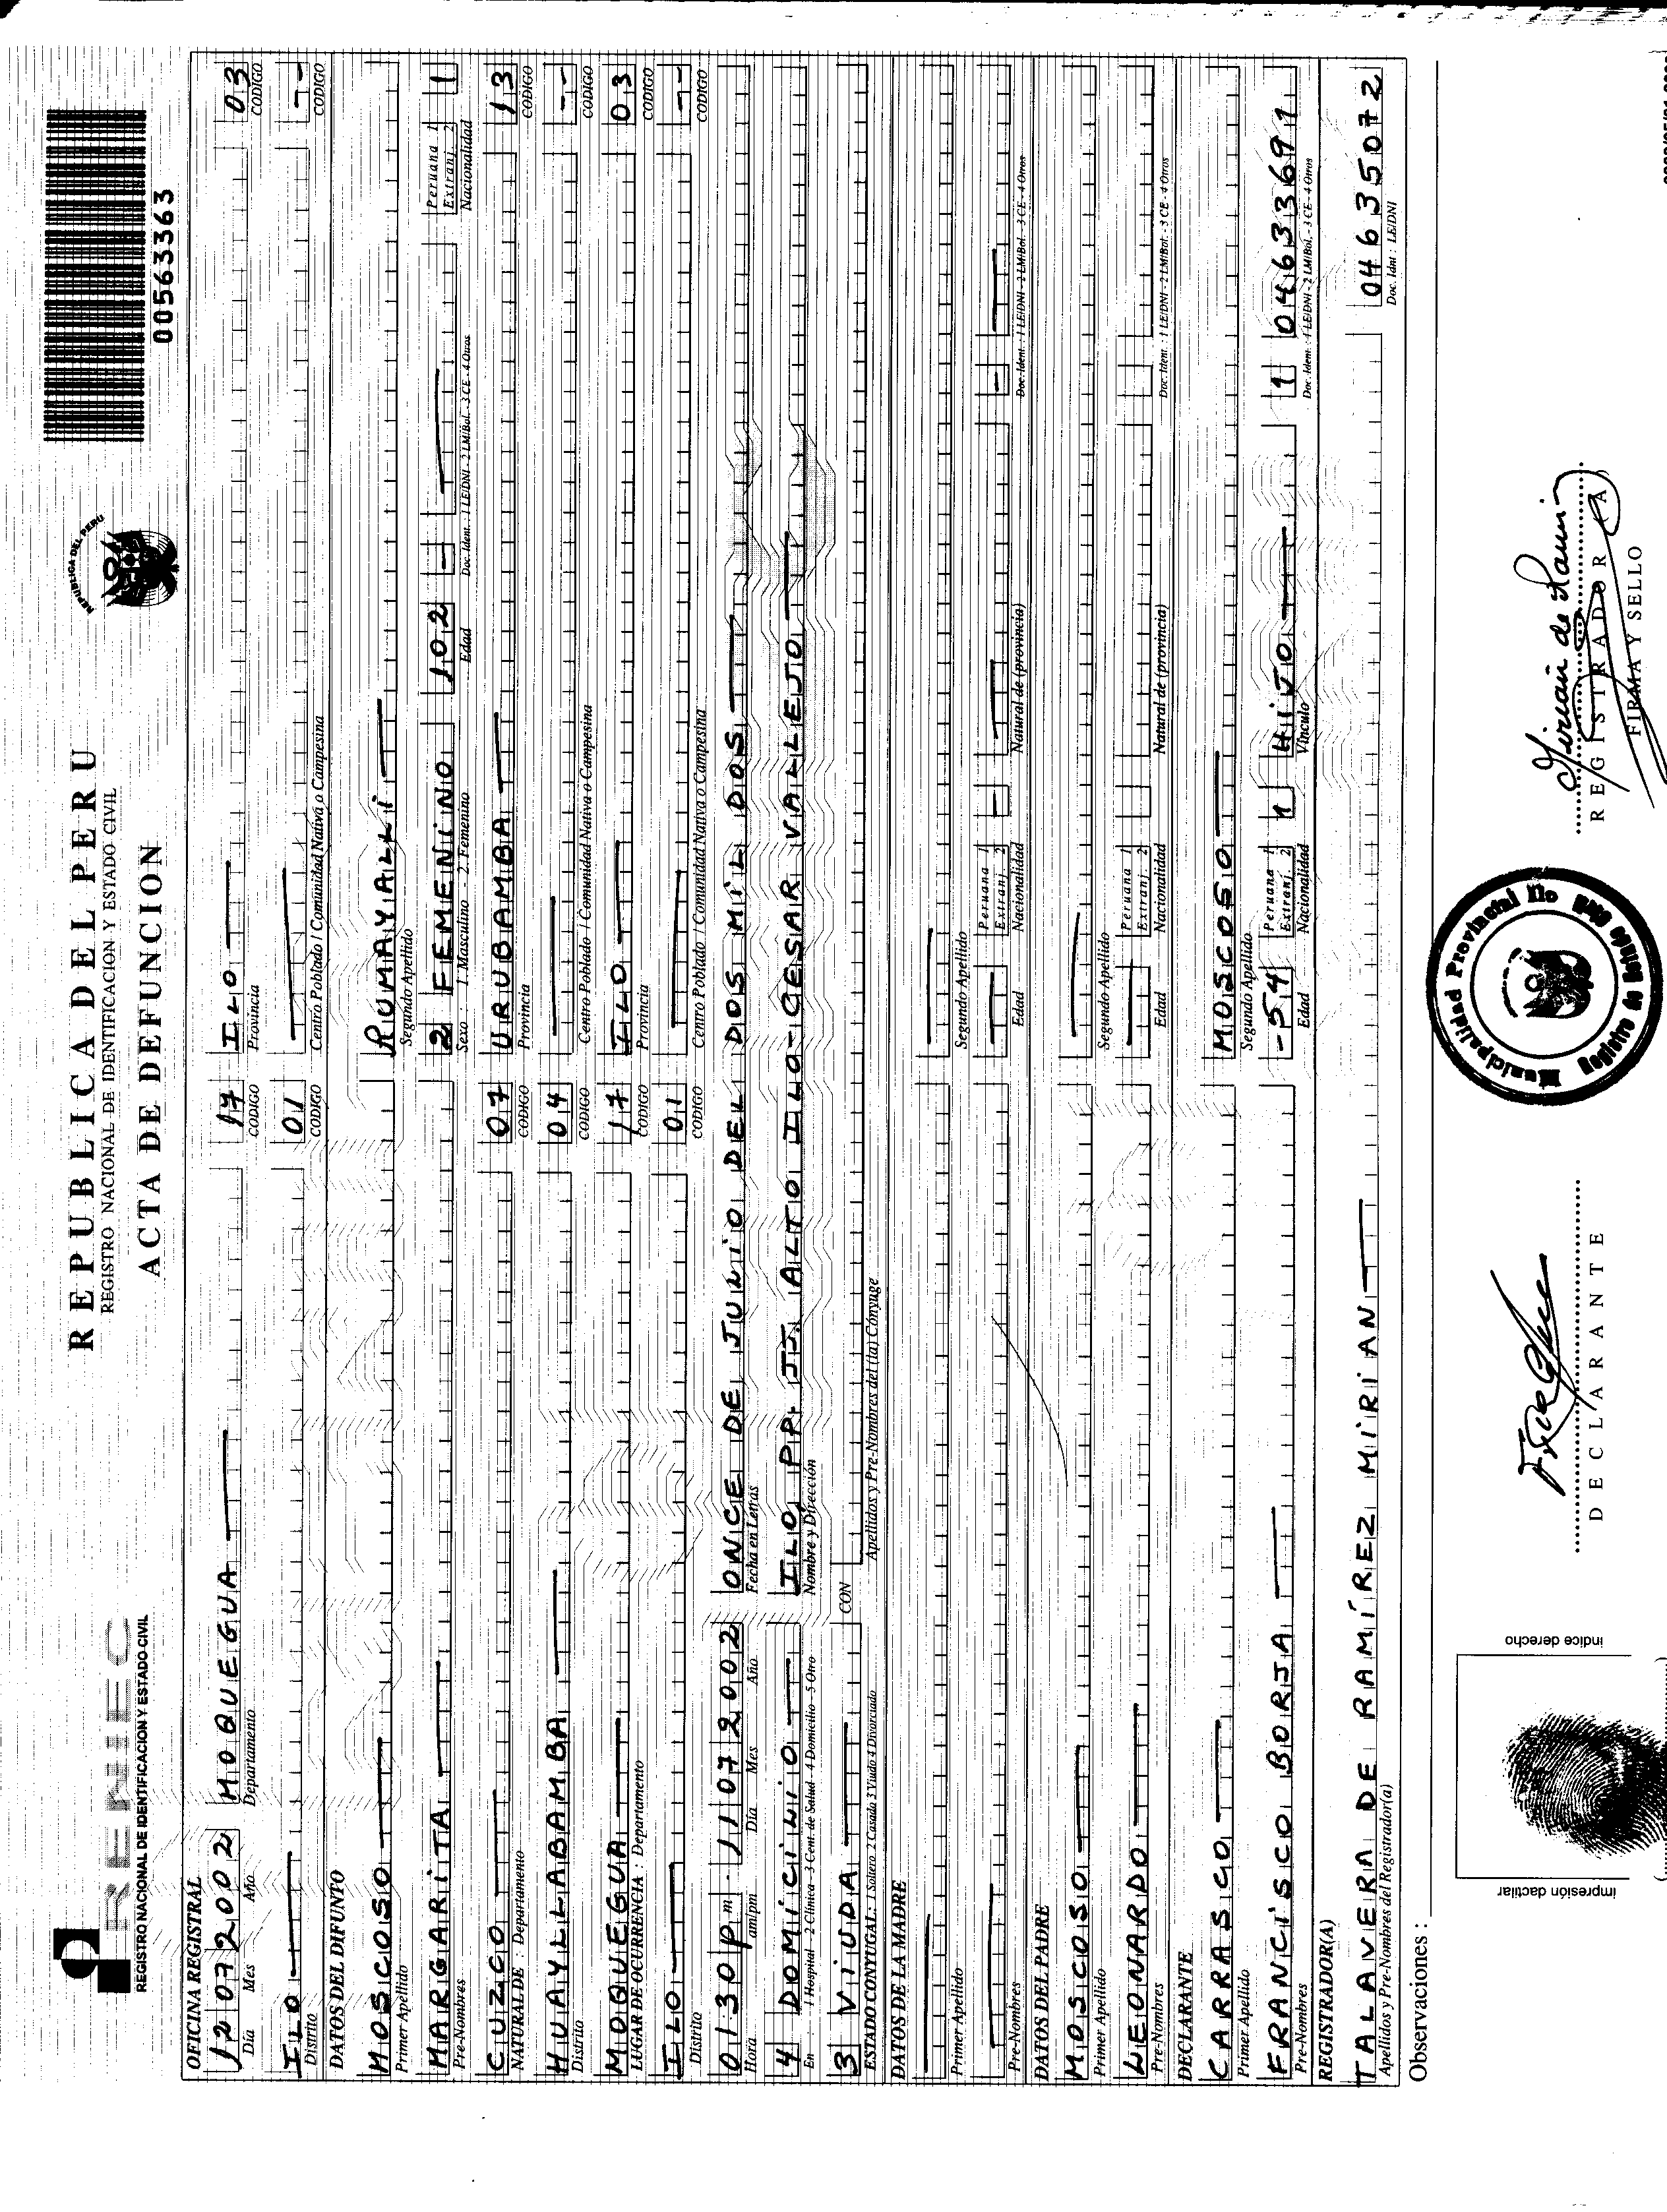 RENIEC
REGISTRO NACIONAL DE IDENTIFICACION Y ESTADO CIVIL
REPUBLICA DEL PERU
REGISTRO NACIONAL DE IDENTIFICACION Y ESTADO CIVIL
ACTA DE DEFUNCION
REPUBLICA DEL PERU
00563363
OFICINA REGISTRAL
12 07 2002 MOQUEGUA 17 ILO 03
Día Mes Año Departamento CODIGO Provincia CODIGO
ILO 01 --
Distrito CODIGO Centro Poblado / Comunidad Nativa o Campesina CODIGO
DATOS DEL DIFUNTO
MOSCOSO RUMAYALLI
Primer Apellido Segundo Apellido
MARGARITA 2 FEMENINO 102 - 1
Pre-Nombres Sexo : 1. Masculino - 2. Femenino Edad Doc. Ident. : 1 LE/DNI - 2 LM/Bol. - 3 CE - 4 Otros Peruana 1 Extranj. 2 Nacionalidad
CUZCO 07 URUBAMBA 13
NATURAL DE : Departamento CODIGO Provincia CODIGO
HUAYLLABAMBA 04 --
Distrito CODIGO Centro Poblado / Comunidad Nativa o Campesina CODIGO
MOQUEGUA 17 ILO 03
LUGAR DE OCURRENCIA : Departamento CODIGO Provincia CODIGO
ILO 01 --
Distrito CODIGO Centro Poblado / Comunidad Nativa o Campesina CODIGO
01 30 pm. 11 07 2002 ONCE DE JUNIO DEL DOS MIL DOS
Hora am/pm Día Mes Año Fecha en Letras
4 DOMICINIO ILO PP. JJ. ALTO ILO-CESAR VALLEJO
En : 1 Hospital - 2 Clínica - 3 Cent. de Salud - 4 Domicilio - 5 Otro Nombre y Dirección
3 VIUDA CON
ESTADO CONYUGAL : 1 Soltero 2 Casado 3 Viudo 4 Divorciado Apellidos y Pre-Nombres del (la) Cónyuge
DATOS DE LA MADRE
Primer Apellido Segundo Apellido
Pre-Nombres Edad Peruana 1 Extranj. 2 Nacionalidad Natural de (provincia) Doc. Ident. : 1 LE/DNI - 2 LM/Bol. - 3 CE - 4 Otros
DATOS DEL PADRE
MOSCOSO
Primer Apellido Segundo Apellido
LEONARDO
Pre-Nombres Edad Peruana 1 Extranj. 2 Nacionalidad Natural de (provincia) Doc. Ident. : 1 LE/DNI - 2 LM/Bol. - 3 CE - 4 Otros
DECLARANTE
CARRASCO MOSCOSO
Primer Apellido Segundo Apellido
FRANCISCO BORJA -54 Peruana 1 Extranj. 2 1 HIJO 1 04633691
Pre-Nombres Edad Nacionalidad Vínculo Doc. Ident. : 1 LE/DNI - 2 LM/Bol. - 3 CE - 4 Otros
REGISTRADOR(A)
TALAVERA DE RAMÍREZ MIRIAN 04635072
Apellidos y Pre-Nombres del Registrador(a) Doc. Idnt : LE/DNI
Observaciones :
impresión dactilar
indice derecho
DECLARANTE
Municipalidad Provincial Ilo
Mirian de Ramirez
REGISTRADOR (A)
FIRMA Y SELLO